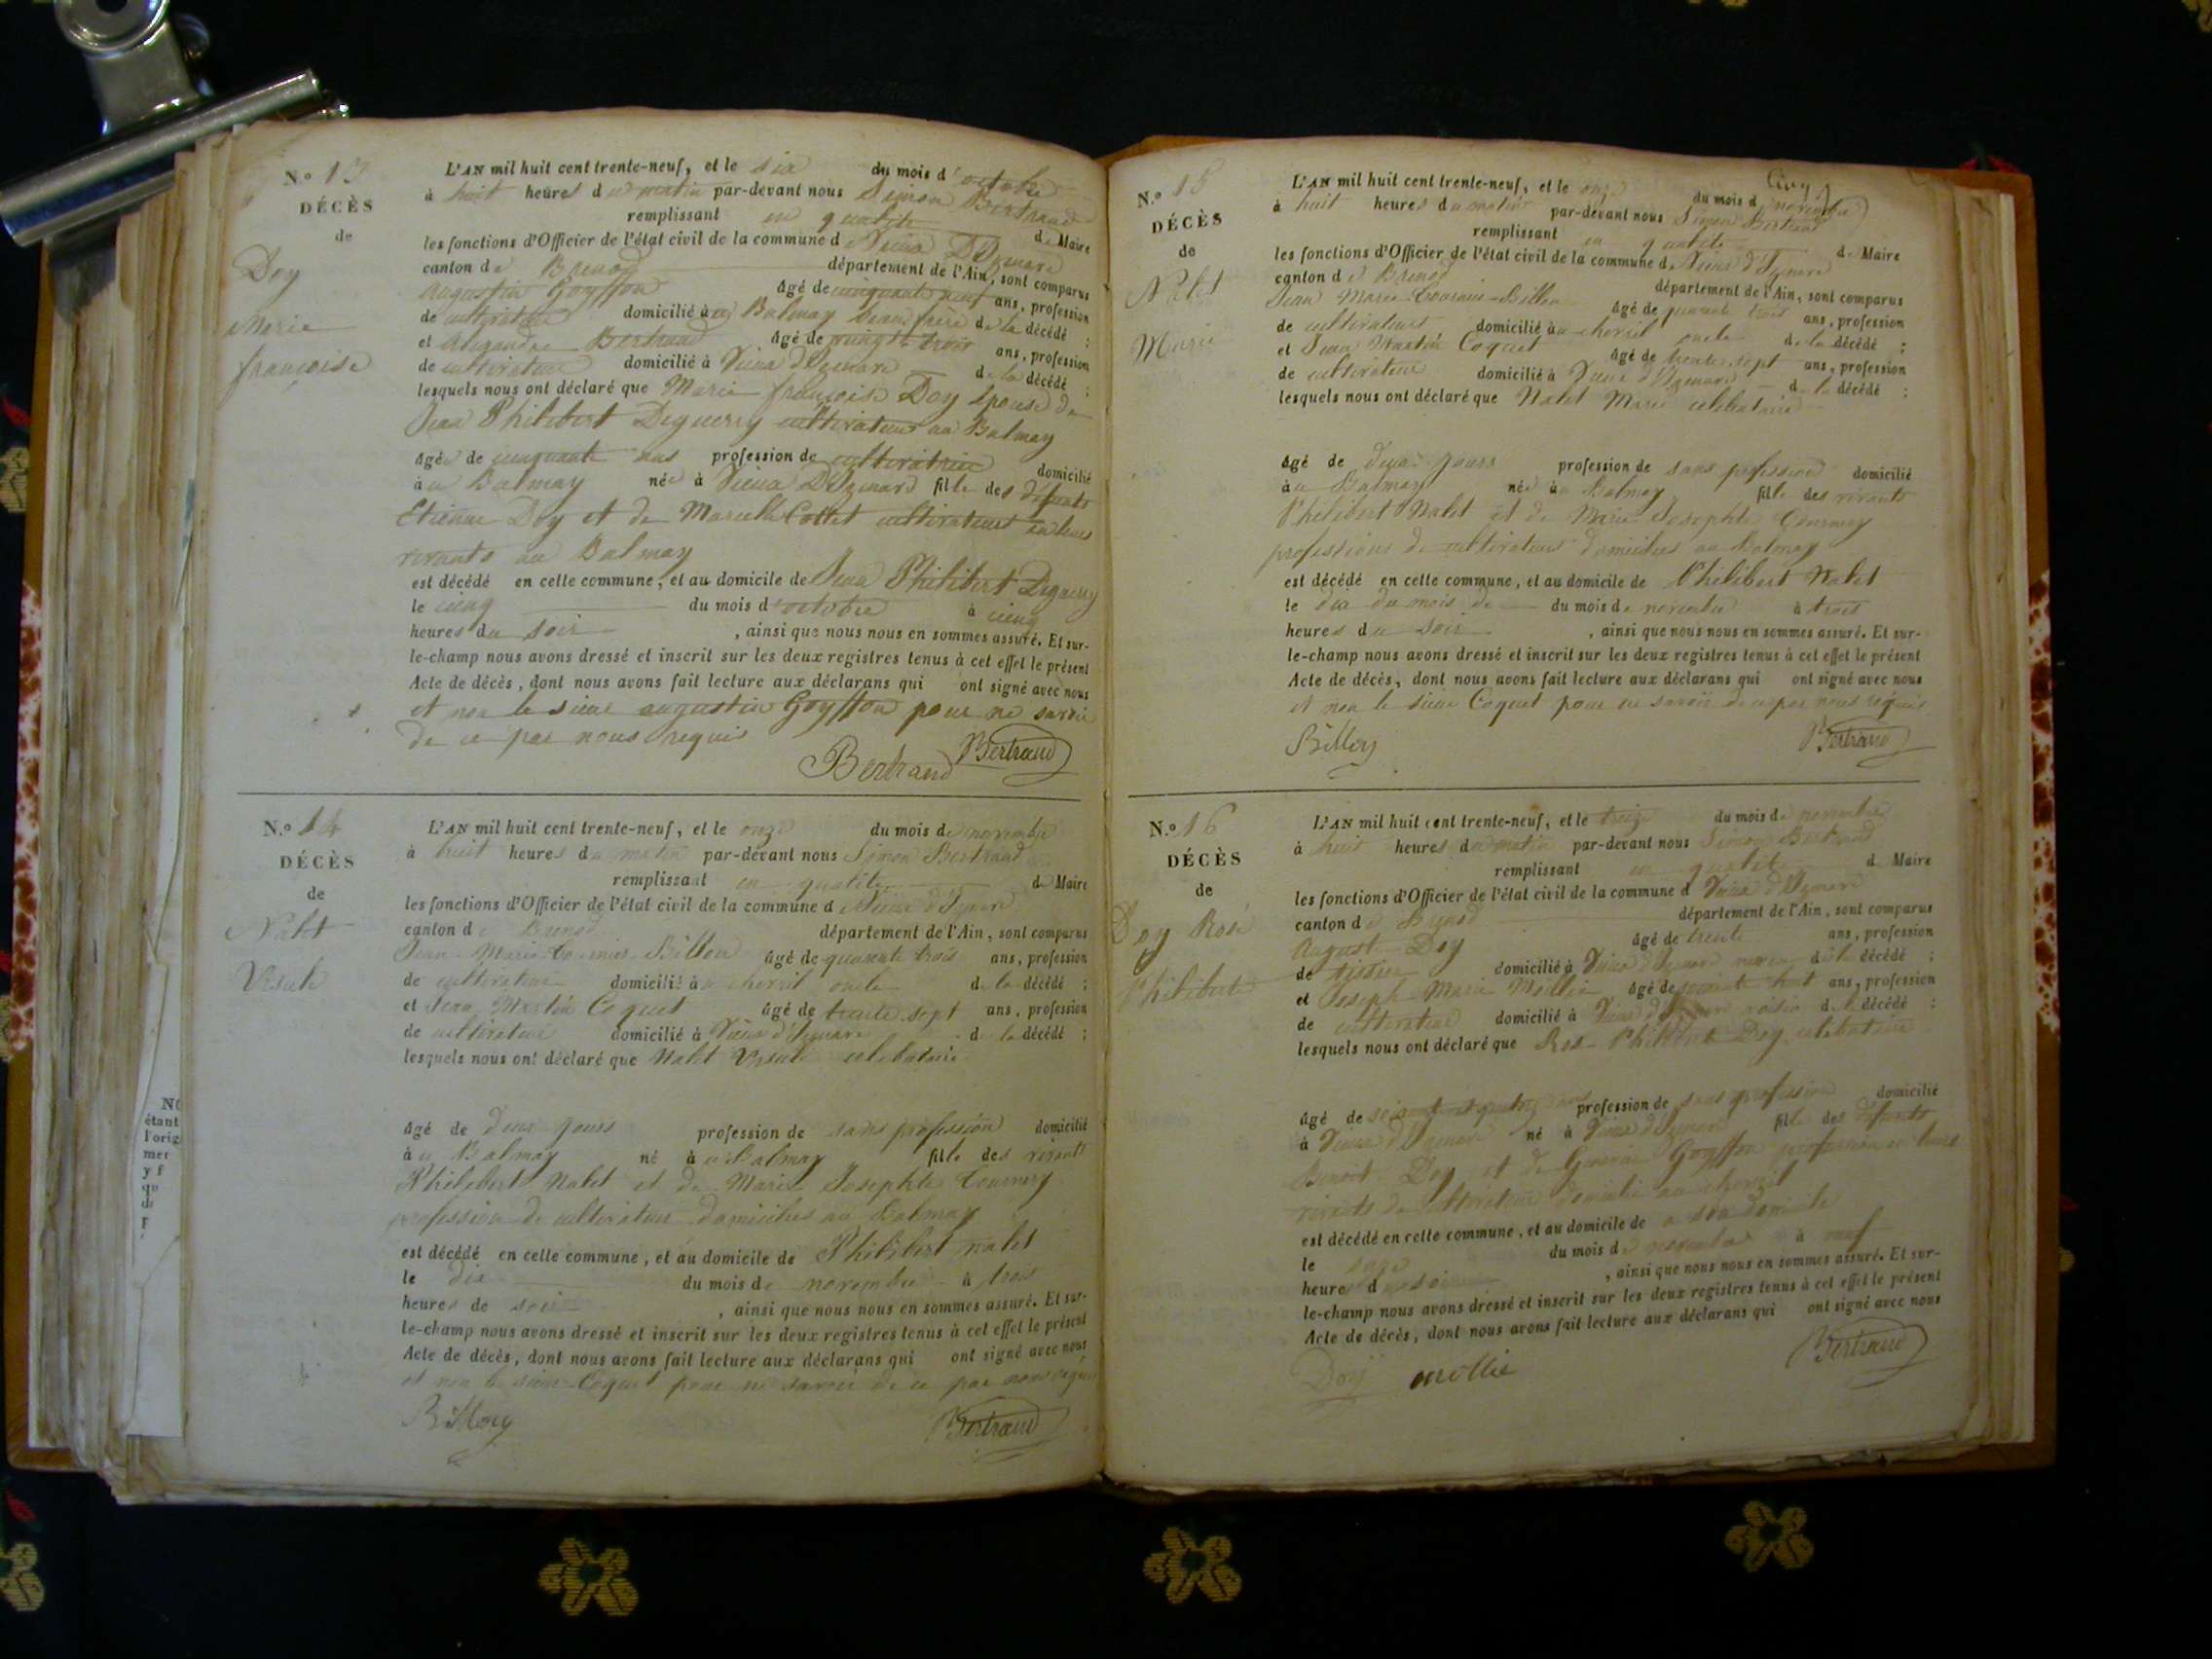 N.o 13
DÉCÈS
de
Doy
Marie
françoise
L'AN mil huit cent trente-neuf, et le six du mois d'octobre
à huit heures du matin par-devant nous Simon Bertrand
remplissant en qualité de Maire
les fonctions d'Officier de l'état civil de la commune de Vieux D'Izenave
canton de Brenod département de l'Ain, sont comparus
Augustin Goyffon âgé de cinquante neuf ans, profession
de cultivateur domicilié au Balmay beau frère de la décédé ;
et Alexandre Bertrand âgé de vingt trois ans, profession
de cultivateur domicilié à Vieux d'Izenave de la décédé ;
lesquels nous ont déclaré que Marie françoise Doy épouse de
Jean Philibert Deguerry cultivateur au Balmay
âgée de cinquante ans profession de cultivatrice domicilié
au Balmay née à Vieux D'Izenave fille des défunts
Etienne Doy et de Marcelle Collet cultivateurs en leurs
vivants au Balmay
est décédé en cette commune, et au domicile de Jean Philibert Deguerry
le cinq du mois d'octobre à cinq
heures du soir , ainsi que nous nous en sommes assuré. Et sur-
le-champ nous avons dressé et inscrit sur les deux registres tenus à cet effet le présent
Acte de décès, dont nous avons fait lecture aux déclarans qui ont signé avec nous
et non le sieur augustin Goyffon pour ne savoir
de ce par nous requis
Bertrand Bertrand
N.o 14
DÉCÈS
de
Nalet
Ursule
L'AN mil huit cent trente-neuf, et le onze du mois de novembre
à huit heures du matin par-devant nous Simon Bertrand
remplissant en qualité de Maire
les fonctions d'Officier de l'état civil de la commune de Vieux d'Izenave
canton de Brenod département de l'Ain, sont comparus
Jean Marie Billon âgé de quarante trois ans, profession
de cultivateur domicilié au chevril oncle de la décédé ;
et Jean Martin Coquet âgé de trente sept ans, profession
de cultivateur domicilié à Vieux d'Izenave de la décédé ;
lesquels nous ont déclaré que Nalet Ursule celibataire
âgé de deux jours profession de sans profession domicilié
au Balmay né au Balmay fille des vivants
Philibert Nalet et de Marie Josephte
profession de cultivateur domiciliés au Balmay
est décédé en cette commune, et au domicile de Philibert nalet
le dix du mois de novembre à trois
heures de soir , ainsi que nous nous en sommes assuré. Et sur-
le-champ nous avons dressé et inscrit sur les deux registres tenus à cet effet le présent
Acte de décès, dont nous avons fait lecture aux déclarans qui ont signé avec nous
et non le sieur Coquet pour ne savoir de ce par nous requis
Bertrand
N.o 15
DÉCÈS
de
Nalet
Marie
L'AN mil huit cent trente-neuf, et le onze du mois d novembre
à huit heures du matin par-devant nous Simon Bertrand
remplissant en qualité de Maire
les fonctions d'Officier de l'état civil de la commune de Vieux d'Izenave
canton de Brenod département de l'Ain, sont comparus
Jean Marie Billon âgé de quarante trois ans, profession
de cultivateur domicilié au chevril oncle de la décédé ;
et Jean Martin Coquet âgé de trente sept ans, profession
de cultivateur domicilié à Vieux d'Izenave de la décédé ;
lesquels nous ont déclaré que Nalet Marie celibataire
âgé de deux jours profession de sans profession domicilié
au Balmay née au Balmay fille des vivants
Philibert Nalet et de Marie Josephte
professions de cultivateur domiciliés au Balmay
est décédé en cette commune, et au domicile de Philibert Nalet
le dix du mois de du mois de novembre à trois
heures du soir , ainsi que nous nous en sommes assuré. Et sur-
le-champ nous avons dressé et inscrit sur les deux registres tenus à cet effet le présent
Acte de décès, dont nous avons fait lecture aux déclarans qui ont signé avec nous
et non le sieur Coquet pour ne savoir de ce par nous requis
Bertrand
N.o 16
DÉCÈS
de
Doy Rose
Philiberte
L'AN mil huit cent trente-neuf, et le treize du mois de novembre
à huit heures du matin par-devant nous Simon Bertrand
remplissant en qualité de Maire
les fonctions d'Officier de l'état civil de la commune d Vieux d'Izenave
canton de Brenod département de l'Ain, sont comparus
August Doy âgé de trente ans, profession
de domicilié à Vieux d'Izenave neveu de la décédé ;
et Joseph Marie Mollie âgé de soixante huit ans, profession
de cultivateur domicilié à Vieux d'Izenave voisin de la décédé ;
lesquels nous ont déclaré que Rose Philiberte Doy celibataire
âgé de profession de sans profession domicilié
à Vieux d'Izenave né à Vieux d'Izenave fille des défunts
Benoit Doy et de Goyffon profession en leurs
vivants de cultivateur au chevril
est décédé en cette commune, et au domicile de a son domicile
le onze du mois de novembre à neuf
heures du soir , ainsi que nous nous en sommes assuré. Et sur-
le-champ nous avons dressé et inscrit sur les deux registres tenus à cet effet le présent
Acte de décès, dont nous avons fait lecture aux déclarans qui ont signé avec nous
Doy mollie Bertrand